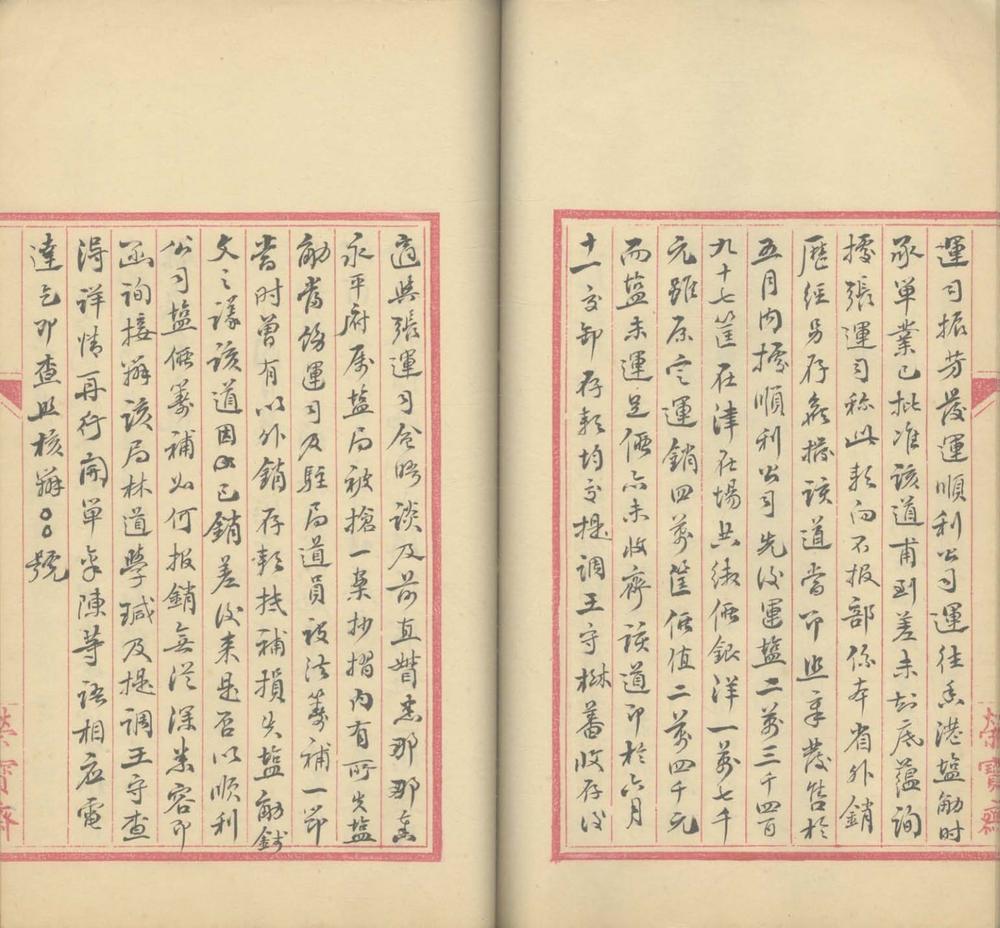 運司振芳發運順利公司運往香港塩觔時
承單業已批准該道甫到差未刦底蘊詢
據張運司称此款向不报部係本省外銷
歷經另存無據該道當即照章發售於
五月内據順利公司先後運塩二萬三千四百
九十七筐在津在場共繳價銀洋一萬七千
元雖原定運銷四萬筐價值二萬四千元
而塩未運足價亦未收齊該道即於六月
十一交卸存款均交提調王守楙蕃收存後
適與張運司會晤談及前直督袁那那
永平府属塩局被搶一案抄摺内有所失塩
觔當飭運司及駐局道員設法籌補一節
當时曾有以外銷存款抵補損失塩觔錢
文之議該道因已銷差後来是否以順利
公司塩價籌補如何报銷無從深悉容即
函詢接辦該局林道學瑊及提調王守查
得詳情再行開單奉陳等语相应電
達乞即查照核辦○○號
榮寶齋
榮寶齋